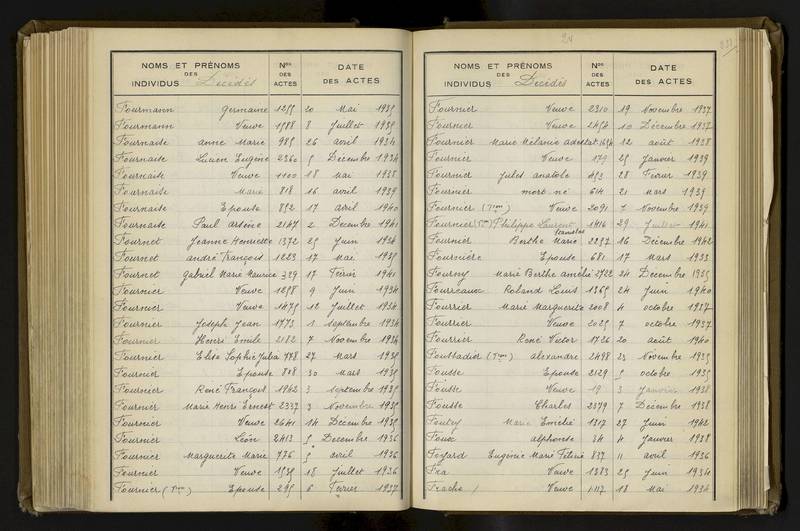 NOMS ET PRÉNOMS DES INDIVIDUS Décédés
Nos DES ACTES
DATE DES ACTES
Fourmann Germaine 1255 20 Mai 1935
Fourmann Veuve 1588 8 Juillet 1935
Fournaise Anne Marie 985 26 avril 1934
Fournaise Lucien Eugène 2360 5 Décembre 1934
Fournaise Veuve 1100 18 Mai 1938
Fournaise Marie 818 16 avril 1939
Fournaise Epouse 852 17 avril 1940
Fournaise Paul arsène 2147 2 Décembre 1941
Fournet Jeanne Henriette 1372 25 Juin 1934
Fournet andré François 1223 17 Mai 1935
Fournet Gabriel Marie Maurice 329 17 Février 1941
Fournier Veuve 1258 9 Juin 1934
Fournier Veuve 1475 12 Juillet 1934
Fournier Joseph Jean 1773 1 septembre 1934
Fournier Henri Emile 2182 7 Novembre 1934
Fournier Elise Sophie Julia 778 27 Mars 1935
Fournier Epouse 808 30 Mars 1935
Fournier René François 1942 3 septembre 1935
Fournier Marie Henri Ernest 2337 3 Novembre 1935
Fournier Veuve 2641 14 Décembre 1935
Fournier Léon 2413 5 Décembre 1936
Fournier Marguerite Marie 776 5 avril 1936
Fournier Veuve 1535 18 Juillet 1936
Fournier Epouse 295 6 Février 1937
24
NOMS ET PRÉNOMS DES INDIVIDUS Décédés
Nos DES ACTES
DATE DES ACTES
Fournier Veuve 2310 19 Novembre 1937
Fournier Veuve 2454 10 Décembre 1937
Fournier Marie Mélanie 12 août 1938
Fournier Veuve 179 25 Janvier 1939
Fournier Jules anatole 453 28 Février 1939
Fournier mort né 614 21 Mars 1939
Fournier Veuve 2091 7 Novembre 1939
Fournier Philippe Laurent Stanislas 1416 29 Juillet 1941
Fournier Berthe Marie 2297 16 Décembre 1942
Fournière Epouse 681 17 Mars 1933
Fourny Marie Berthe Amélie 2722 24 Décembre 1935
Fourreaux Roland Louis 1365 24 Juin 1940
Fourrier Marie Marguerite 2008 4 octobre 1937
Fourrier Veuve 2025 7 octobre 1937
Fourrier René Victor 1726 20 août 1940
alexandre 2498 23 Novembre 1935
Fousse Epouse 2129 5 octobre 1935
Fousse Veuve 19 3 Janvier 1938
Fousse Charles 2379 7 Décembre 1938
Marie Emélie 1317 27 Juin 1942
Foux alphonse 34 4 Janvier 1938
Foyard Eugénie Marie 837 11 avril 1936
Fra Veuve 1383 25 Juin 1934
Frache Veuve 1117 18 Mai 1934